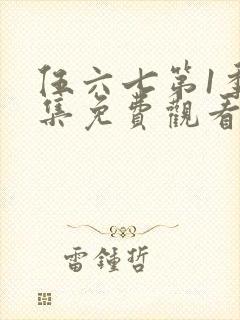 伍六七第1季
集免費觀看
雷鍾哲